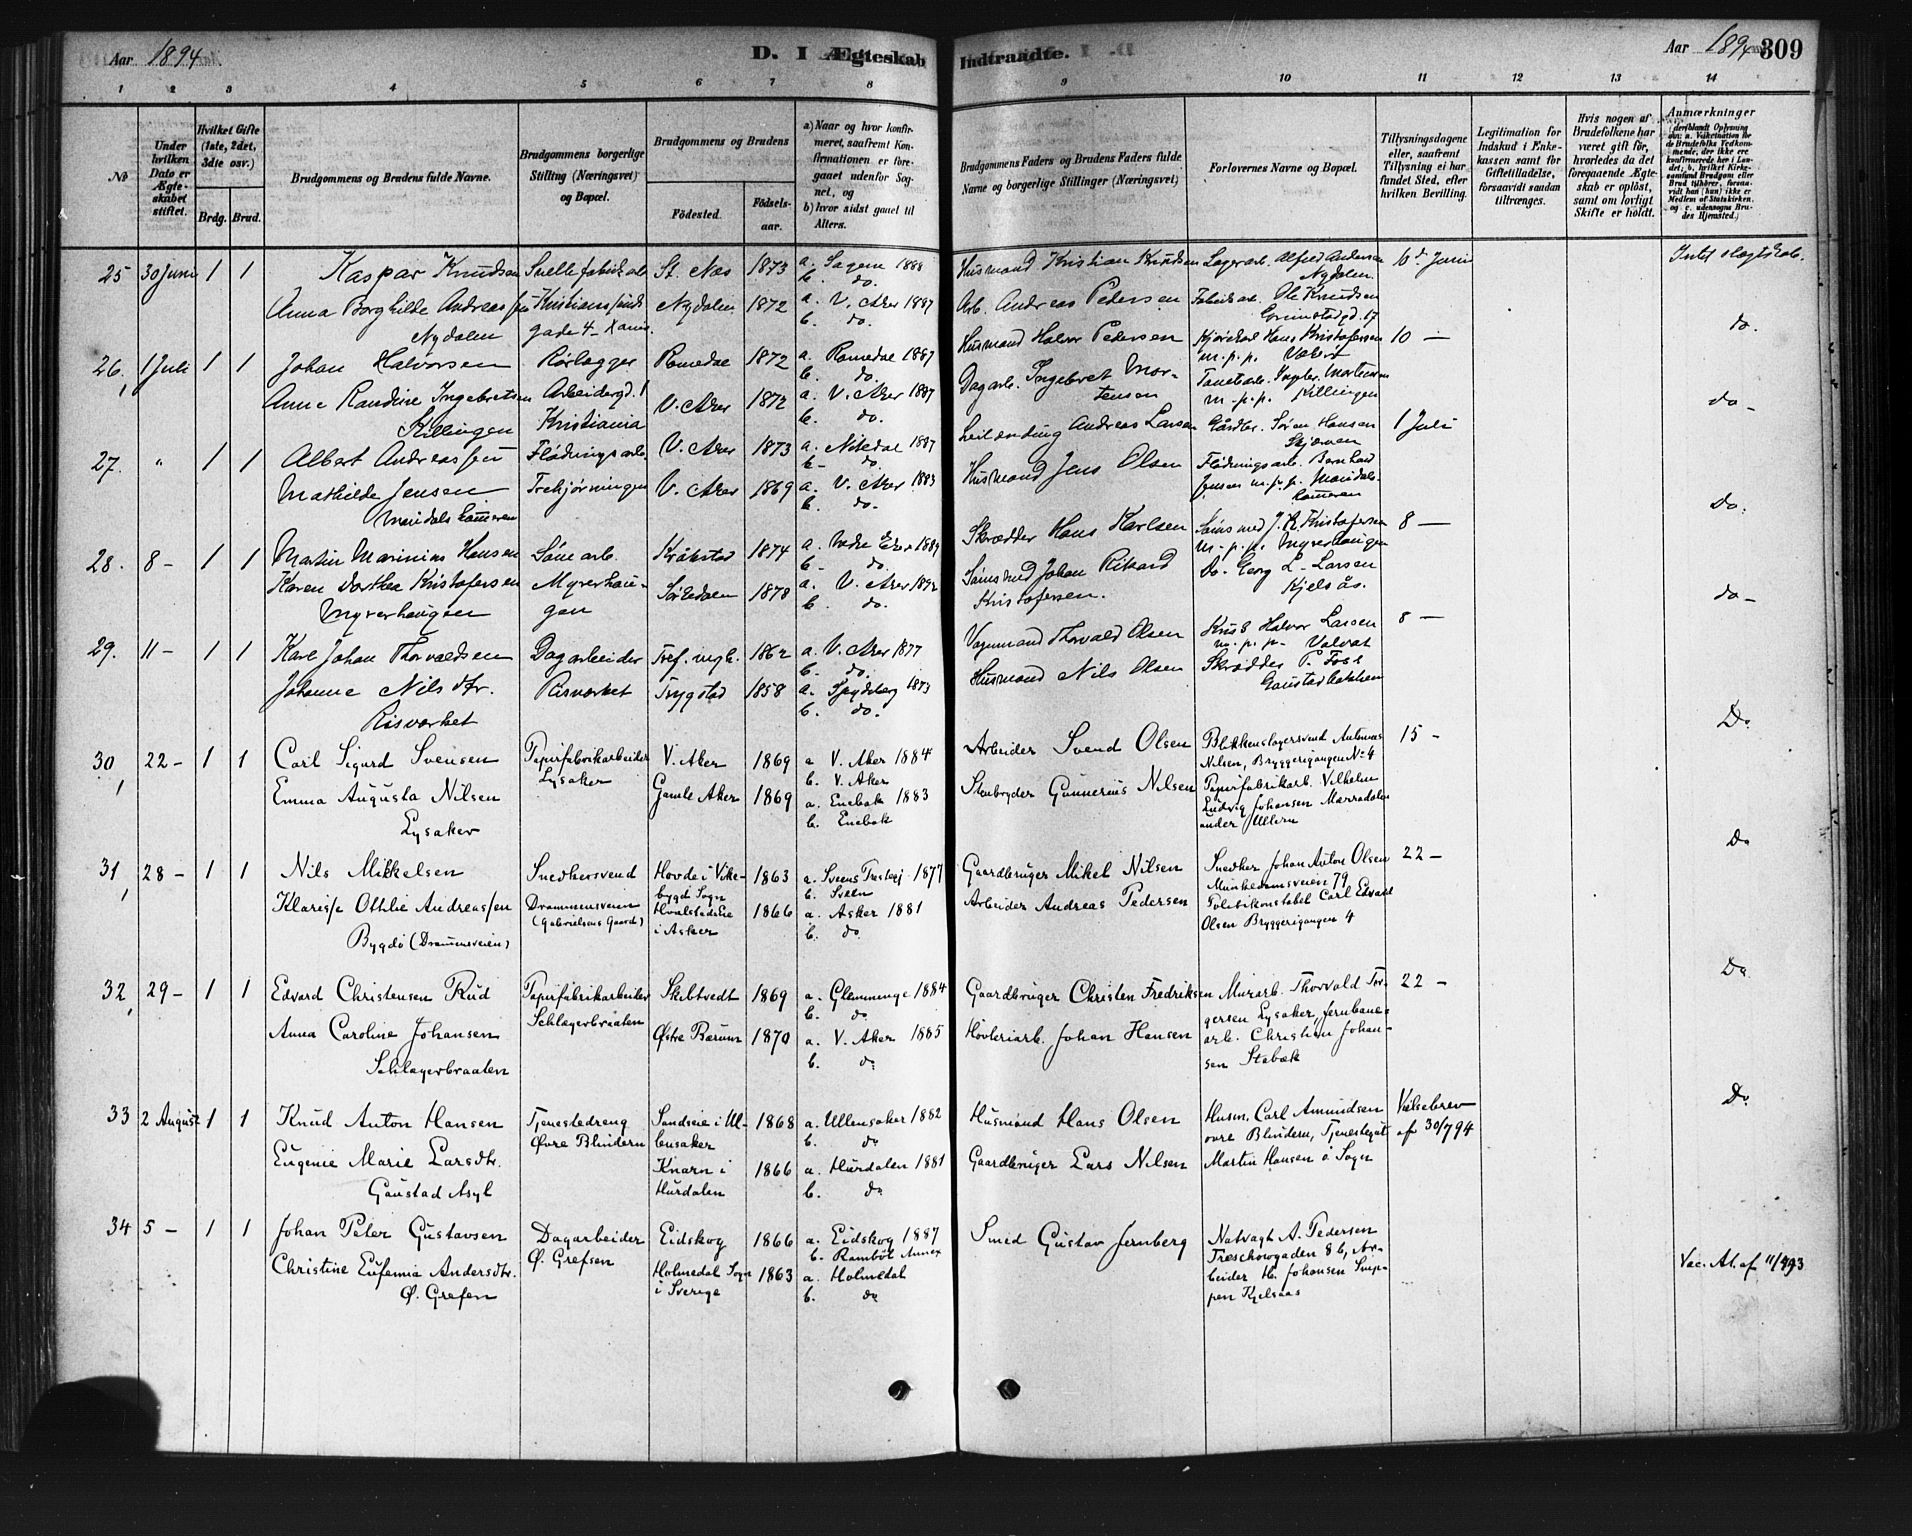 Aar 1894
D. I Ægteskab Indtraadte.
Aar 1894 309
1 2 3 4 5 6 7 8 9 10 11 12 13 14
No
Under hvilken Dato er Ægteskabet stiftet.
Hvilket Gifte (1ste, 2det, 3die osv.)
Brdg. Brud.
Brudgommens og Brudens fulde Navne.
Brudgommens borgerlige Stilling (Næringsvei) og Bopæl.
Brudgommens og Brudens
Födested. Födselsaar.
a) Naar og hvor konfirmeret, saafremt Konfirmationen er foregaaet udenfor Sognet, og
b) hvor sidst gaaet til Alters.
Brudgommens Faders og Brudens Faders fulde Navne og borgerlige Stillinger (Næringsvei)
Forlovernes Navne og Bopæl.
Tillysningsdagene eller, saafremt Tillysning ei har fundet Sted, efter hvilken Bevilling.
Legitimation for Indskud i Enkekassen samt for Giftetilladelse, forsaavidt saadan tiltrænges.
Hvis nogen af Brudefolkene har været gift för, hvorledes da det foregaaende Ægteskab er oplöst, samt om lovligt Skifte er holdt.
Anmærkninger
25 30 Juni 1 1 Kaspar Knudsen St. Næs 1873 a. Sagene 1888 Husmand Kristian Knudsen Lagerarb. Alfred Andersen 10d Juni Intet slægtskab.
b. do. Nydalen
Anna Borghilde Andreassen Nydalen 1872 a. V. Aker 1887 Arb. Andreas Pedersen Fabrikarb. Ole Knudsen
Nydalen gade 4 b. do. Grimstadgd. 17 do.
26, 1 Juli 1 1 Johan Halvorsen Rørlægger Romedal 1872 a. Romedal 1887 Husmand Halvor Pedersen Kjørekarl Hans Kristofersen 10 —
b. do. m.p.p.
Anne Randine Ingebretsen Arbeidergd. 1 V. Aker 1872 a. V. Aker 1887 Dagarb. Ingebret Mortensen
Killingen Kristiania b. do. m.p.p. Killingen do -
27. " 1 1 Albert Andreassen Flødningsarb. V. Aker 1873 a. Nitedal 1887 Leilænding Andreas Larsen Gårdbr. Søren Hansen 1 Juli
b - do.
Mathilde Jensen V. Aker 1869 a. V. Aker 1883 Husmand Jens Olsen Flødningsarb. Bernhard
b. do. Jensen m.p.p. Do.
28. 8 - 1 1 Martin Marinius Hansen Kråkstad 1874 a. 1889 Skrædder Hans Karlsen J. R. Kristofersen 8 —
b - do. m.p.p. Myrerhaugen
Karen Dorthea Kristofersen Myrerhaugen Sørkedalen 1878 a. V. Aker 1892 Johan Rikard Kristofersen. Do. Georg L. Larsen
Myrerhaugen b. do. Kjelsås. do -
29. 11 - 1 1 Karl Johan Thorvaldsen Dagarbeider 1862 a. V. Aker 1877 Vognmand Thorvald Olsen Halvor Larsen 8 —
b. do. m.p.p.
Johanne Nilsdtr. Risværket Trygstad 1858 a. Spydeberg 1873 Husmand Nils Olsen Skrædder P. Foss
Risværket b. do. Gaustadbakken Do
30, 22 - 1 1 Carl Sigurd Svensen Papirfabrikarbeider V. Aker 1869 a V. Aker 1884 Arbeider Svend Olsen Blikkenslagersvend 15 -
Lysaker b. V. Aker Nilsen, Bryggerigangen No 4
Emma Augusta Nilsen Gamle Aker 1869 a. Enebak 1883 Stenbryder Gunnerius Nilsen Papirfabrikarb. Vilhelm
Lysaker b. Enebak Ludvig Johansen Marradalen under Ullern Do
31, 28 - 1 1 Nils Mikkelsen Snedkersvend Hovde i Vikebygd Sogn 1863 a. 1877 Gaardbruger Mikel Nilsen Snedker Johan Anton Olsen 22 -
b. Sveen Munkedamsveien 79
Klarisse Othlie Andreassen Drammensveien Hvalstadeie 1866 a. Asker 1881 Arbeider Andreas Pedersen Politikonstabel Carl Edvard
Bygdö (Drammensveien) (Gabrielsens Gaard) i Asker b. do Olsen Bryggerigangen 4 Do
32, 29 - 1 1 Edvard Christensen Rud Papirfabrikarbeider Skibtvedt 1869 a. Glemminge 1884 Gaardbruger Christen Fredriksen Murarb. Thorvald Tor- 22 -
Schlagerbraaten b. do gersen Lysaker, Jernbane-
Anna Caroline Johansen Østre Bærum 1870 a. V. Aker 1885 Høvleriarb. Johan Hansen arb. Christian Johan-
Schlagerbraaten b. do sen Stabæk Do
33 2 August 1 1 Knud Anton Hansen Tjenestedreng Sandseie i Ul- 1868 a. Ullensaker 1882 Husmand Hans Olsen Husm. Carl Amundsen Vielsebrev
Øvre Blindern lensaker b. do øvre Blindern, Tjenestegut af 30/7 94
Eugenie Marie Larsdtr. Knarn i 1866 a. Hurdalen 1881 Gaardbruger Lars Nilsen Martin Hansen ö Sogn
Gaustad Asyl Hurdalen b. do
34 5 - 1 1 Johan Peter Gustavsen Dagarbeider Eidskog 1866 a. Eidskog 1887 Smed Gustav Jernberg Natvagt A. Pedersen
Ø. Grefsen b. Annex Treschowgaden 8 b, Ar-
Christine Eufemia Andersdtr. Holmedal Sogn 1863 a. Holmedal beider H. Johansen
Ø. Grefsen i Sverige b. do Kjelsaas Vac. At. af